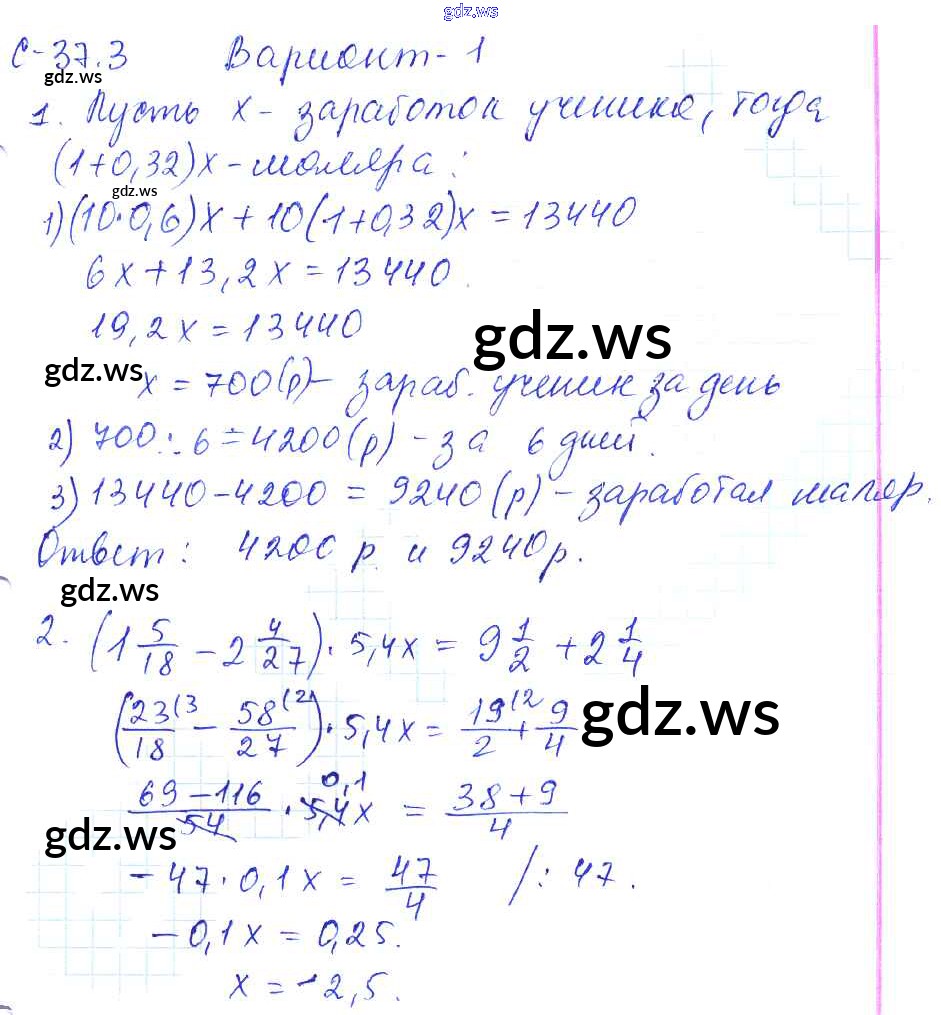 gdz.ws
С-37.3 Вариант-1
gdz.ws
1. Пусть x - заработок ученика, тогда
(1+0,32)x - маляра:
gdz.ws
1) (10·0,6)x + 10(1+0,32)x = 13440
6x + 13,2x = 13440.
19,2x = 13440
gdz.ws
gdz.ws
x = 700(р) - зараб. ученик за день
2) 700 : 6 = 4200(р) - за 6 дней.
3) 13440 - 4200 = 9240(р) - заработал маляр.
Ответ: 4200 р и 9240р.
gdz.ws
2. (1 5/18 - 2 4/27) · 5,4x = 9 1/2 + 2 1/4
(23(3/18 - 58(2/27) · 5,4x = 19(2/2 + 9/4
gdz.ws
0,1
69-116/54 · 5,4x = 38+9/4
gdz.ws
-47 · 0,1x = 47/4 /: 47.
-0,1x = 0,25.
x = -2,5.